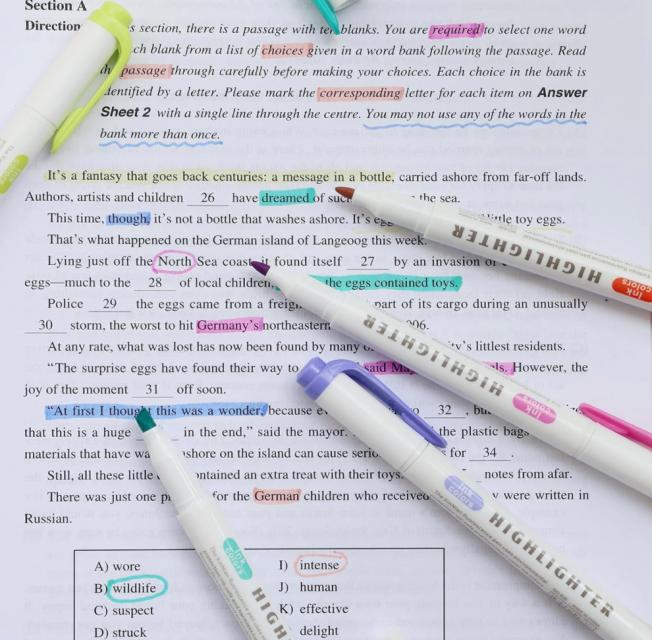 Section A
Direction s section, there is a passage with ten blanks. You are required to select one word
ch blank from a list of choices given in a word bank following the passage. Read
the passage through carefully before making your choices. Each choice in the bank is
identified by a letter. Please mark the corresponding letter for each item on Answer
Sheet 2 with a single line through the centre. You may not use any of the words in the
bank more than once.
It's a fantasy that goes back centuries: a message in a bottle, carried ashore from far-off lands.
Authors, artists and children 26 have dreamed of suc the sea.
This time, though, it's not a bottle that washes ashore. It's egg little toy eggs.
That's what happened on the German island of Langeoog this week.
Lying just off the North Sea coast, it found itself 27 by an invasion of
eggs—much to the 28 of local children, the eggs contained toys.
Police 29 the eggs came from a freigh part of its cargo during an unusually
30 storm, the worst to hit Germany's northeastern 006.
At any rate, what was lost has now been found by many ity's littlest residents.
"The surprise eggs have found their way to said May ls. However, the
joy of the moment 31 off soon.
"At first I thought this was a wonder, because e o 32 , bu
that this is a huge in the end," said the mayor. the plastic bags
materials that have wa ashore on the island can cause serio for 34 .
Still, all these little ontained an extra treat with their toys. notes from afar.
There was just one p for the German children who received y were written in
Russian.
A) wore
B) wildlife
C) suspect
D) struck
I) intense
J) human
K) effective
delight
HIGHLIGHTER
ink colors
HIGHLIGHTER
ink colors
HIGHLIGHTER
ink colors
HIGH
ink colors